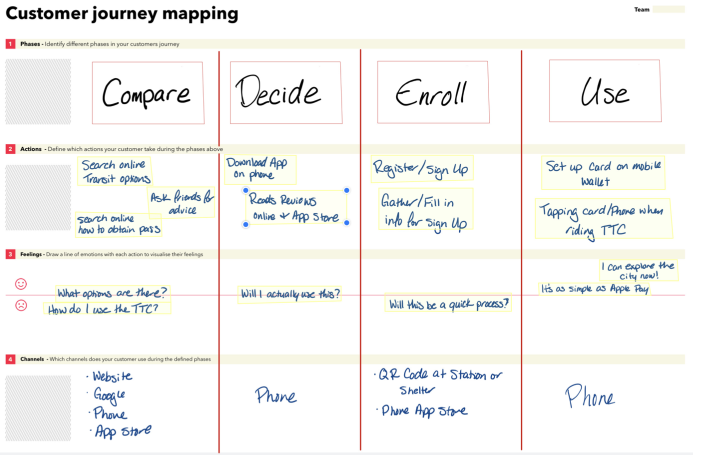 Customer journey mapping
Team
1 Phases - Identify different phases in your customers journey
Compare
Decide
Enroll
Use
2 Actions - Define which actions your customer take during the phases above
Search online
Transit options
Ask friends for
advice
search online
how to obtain pass
Download App
on phone
Reads Reviews
online + App Store
Register/Sign Up
Gather/Fill in
info for Sign Up
Set up Card on mobile
wallet
Tapping card/Phone when
riding TTC
3 Feelings - Draw a line of emotions with each action to visualise their feelings
What options are there?
How do I use the TTC?
Will I actually use this?
Will this be a quick process?
I can explore the
city now!
It's as simple as Apple Pay
4 Channels - Which channels does your customer use during the defined phases
· Website
· Google
· Phone
· App Store
Phone
· QR Code at Station or
Shelter
· Phone App Store
Phone